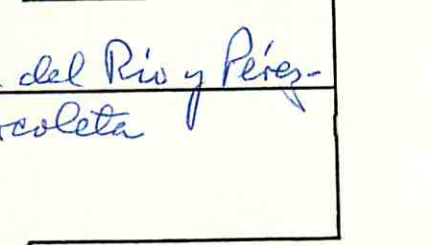 del Río y Pérez-
coleta